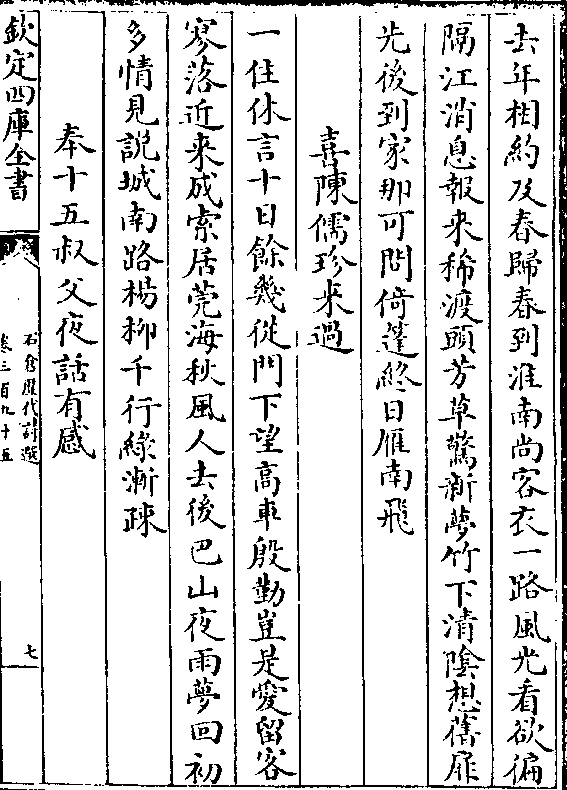 去年相約及春歸春到淮南尚客衣一路風光看欲徧
隔江消息報來稀渡頭芳草驚新夢竹下清陰想舊扉
先後到家那可問倚篷終日雁南飛
喜陳儒珍來過
一住休言十日餘幾從門下望高車殷勤豈是愛留客
寥落近來成索居莞海秋風人去後巴山夜雨夢回初
多情見說城南路楊柳千行綠漸疎
奉十五叔父夜話有感
欽定四庫全書
石倉歷代詩選
卷三百九十五
七